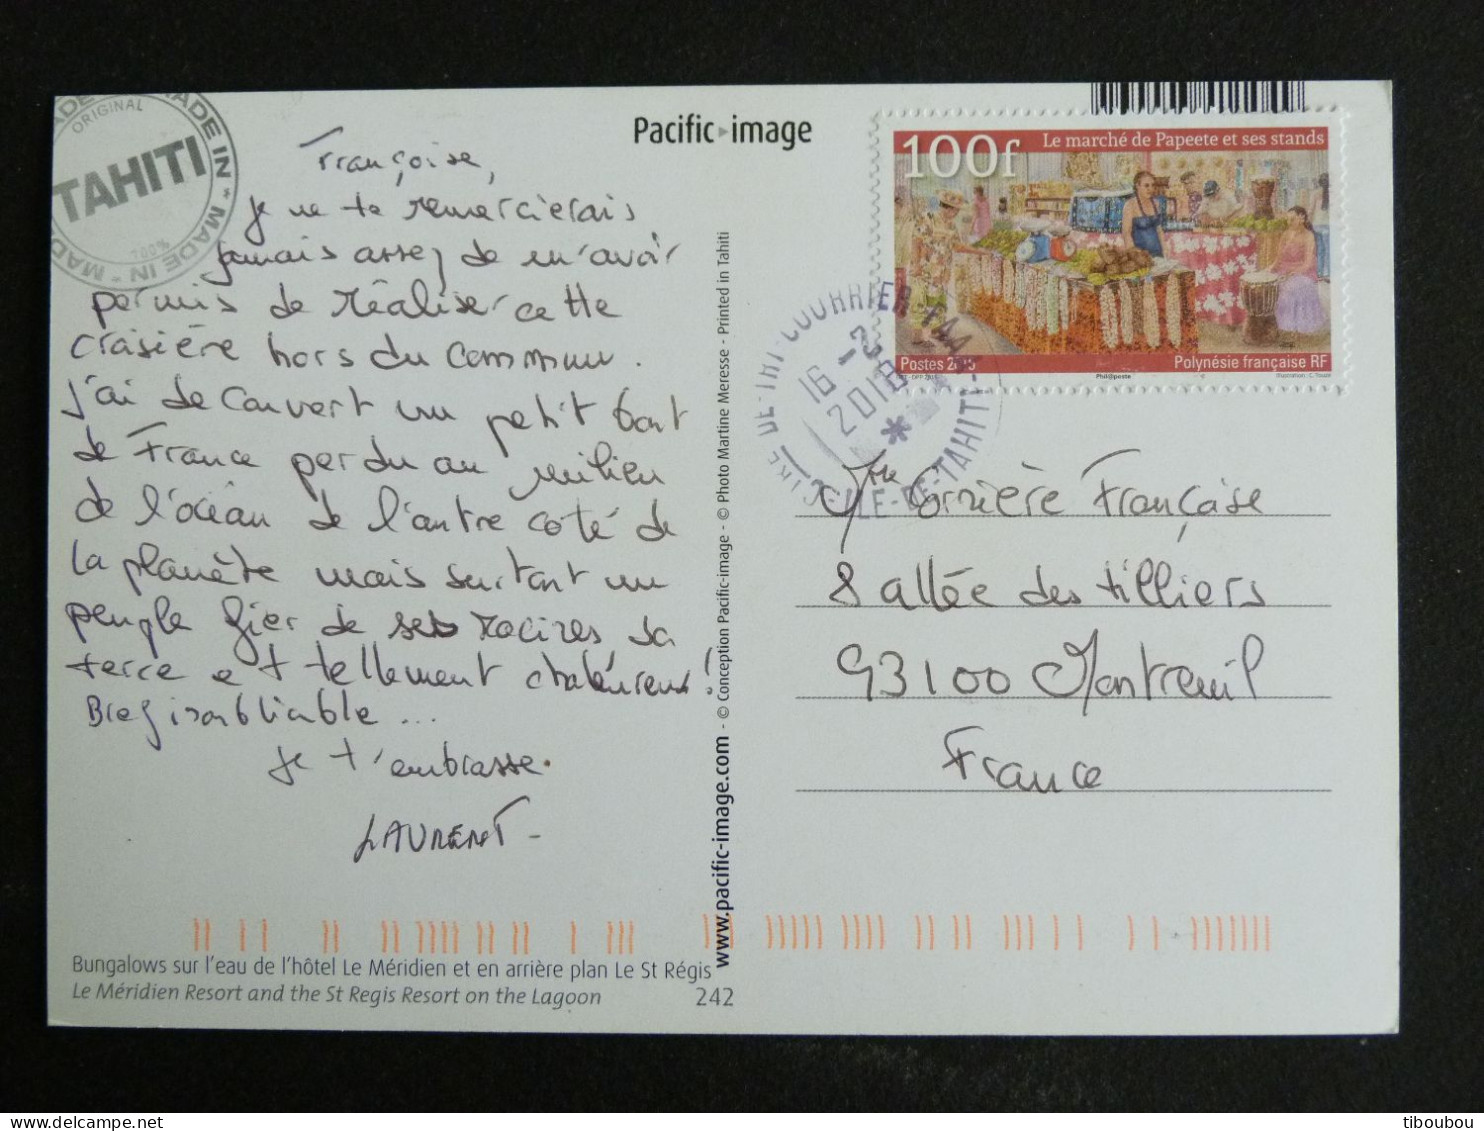 MADE IN * MADE IN * MADE
ORIGINAL
TAHITI
100%
Pacific image
Françoise,
je ne te remercierais
jamais assez de m'avoir
permis de réaliser cette
craisière hors du commun.
J'ai découvert un petit bout
de France perdu au milieu
de l'océan de l'autre coté de
la planète mais surtout un
peuple fier de ses racines sa
terre et tellement chaleureux!
Bref inoubliable...
Je t'embrasse.
LAURENT-
Bungalows sur l'eau de l'hôtel Le Méridien et en arrière plan Le St Régis
Le Méridien Resort and the St Regis Resort on the Lagoon
242
www.pacific-image.com - © Conception Pacific-image - © Photo Martine Meresse - Printed in Tahiti
100f
Le marché de Papeete et ses stands
Postes
Polynésie française RF
Phil@poste
DE TRI COURRIER FAAA
16-2
2018
*
ILE-DE-TAHITI
Mme Françoise
8 allée des tilliers
93100 Montreuil
France
tiboubou